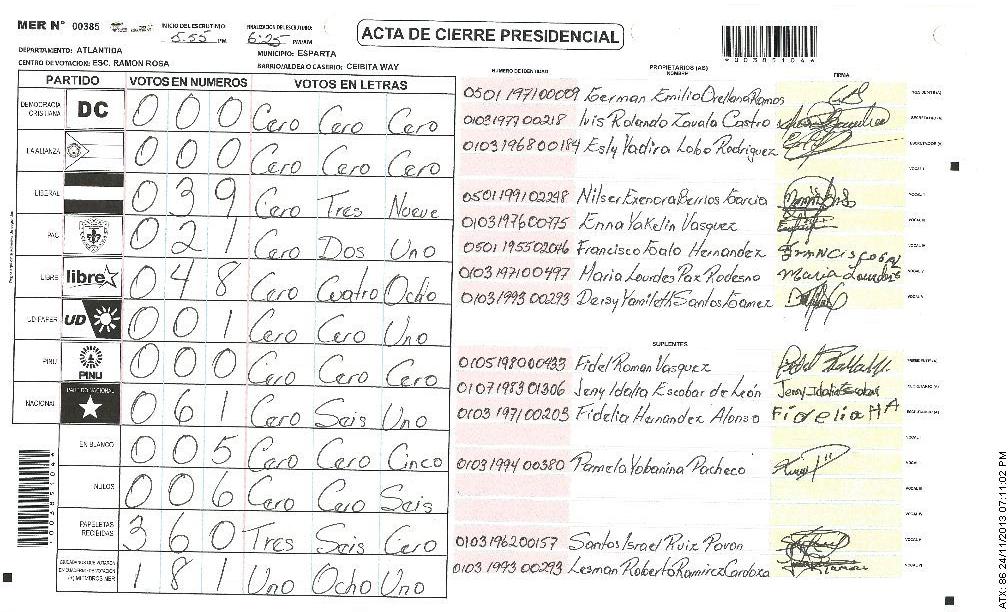 MER N° 00385 INICIO DEL ESCRUTINIO 5:55 PM FINALIZACION DEL ESCRUTINIO: 6:25 PM/AM
ACTA DE CIERRE PRESIDENCIAL
*003851046*
DEPARTAMENTO: ATLANTIDA MUNICIPIO: ESPARTA
CENTRO DE VOTACION: ESC. RAMON ROSA BARRIO/ALDEA O CASERIO: CEIBITA WAY
PARTIDO VOTOS EN NUMEROS VOTOS EN LETRAS
DEMOCRACIA CRISTIANA DC 0 0 0 Cero Cero Cero
LA ALIANZA 0 0 0 Cero Cero Cero
LIBERAL 0 3 9 Cero Tres Nueve
PAC 0 2 1 Cero Dos Uno
LIBRE libre 0 4 8 Cero Cuatro Ocho
UD/FAPER UD 0 0 1 Cero Cero Uno
PINU PINU 0 0 0 Cero Cero Cero
NACIONAL PARTIDO NACIONAL 0 6 1 Cero Seis Uno
EN BLANCO 0 0 5 Cero Cero Cinco
NULOS 0 0 6 Cero Cero Seis
PAPELETAS RECIBIDAS 3 6 0 Tres Seis Cero
CIUDADANOS QUE VOTARON 1 8 1 Uno Ocho Uno
(+) MIEMBROS MER
*003851046*
NUMERO DE IDENTIDAD PROPIETARIOS (AS) NOMBRE FIRMA
0501197100009 German Emilio Orellana Ramos PRESIDENTE(A)
0103197700218 luis Rolando Zavala Castro SECRETARIO(A)
0103196800184 Esly Yadira Lobo Rodriguez ESCRUTADOR(A)
VOCAL I
0501199102248 Nilser Exenora Berrios Garcia VOCAL II
0103197600775 Enna Yakelin Vasquez VOCAL III
0501195502046 Francisco Goalo Hernandez VOCAL IV
0103197100497 Maria Lourdes Paz Rodesno Maria Lourdes VOCAL V
0103199300293 Deisy Yamileth Santos Gamez VOCAL VI
SUPLENTES
0105198000433 Fidel Roman Vasquez PRESIDENTE(A)
0107198301306 Jeny Idalia Escobar de León Jeny Idalia Escobar SECRETARIO(A)
0103197100203 Fidelia Hernandez Alonso Fidelia HA ESCRUTADOR(A)
VOCAL I
0103199400380 Pamela Yobanina Pacheco VOCAL II
VOCAL III
VOCAL IV
0103196200157 Santos Israel Ruiz Pavon VOCAL V
0103199300293 Lesman Roberto Ramirez Cardoza VOCAL VI
ATX: 86 24/11/2013 07:11:02 PM